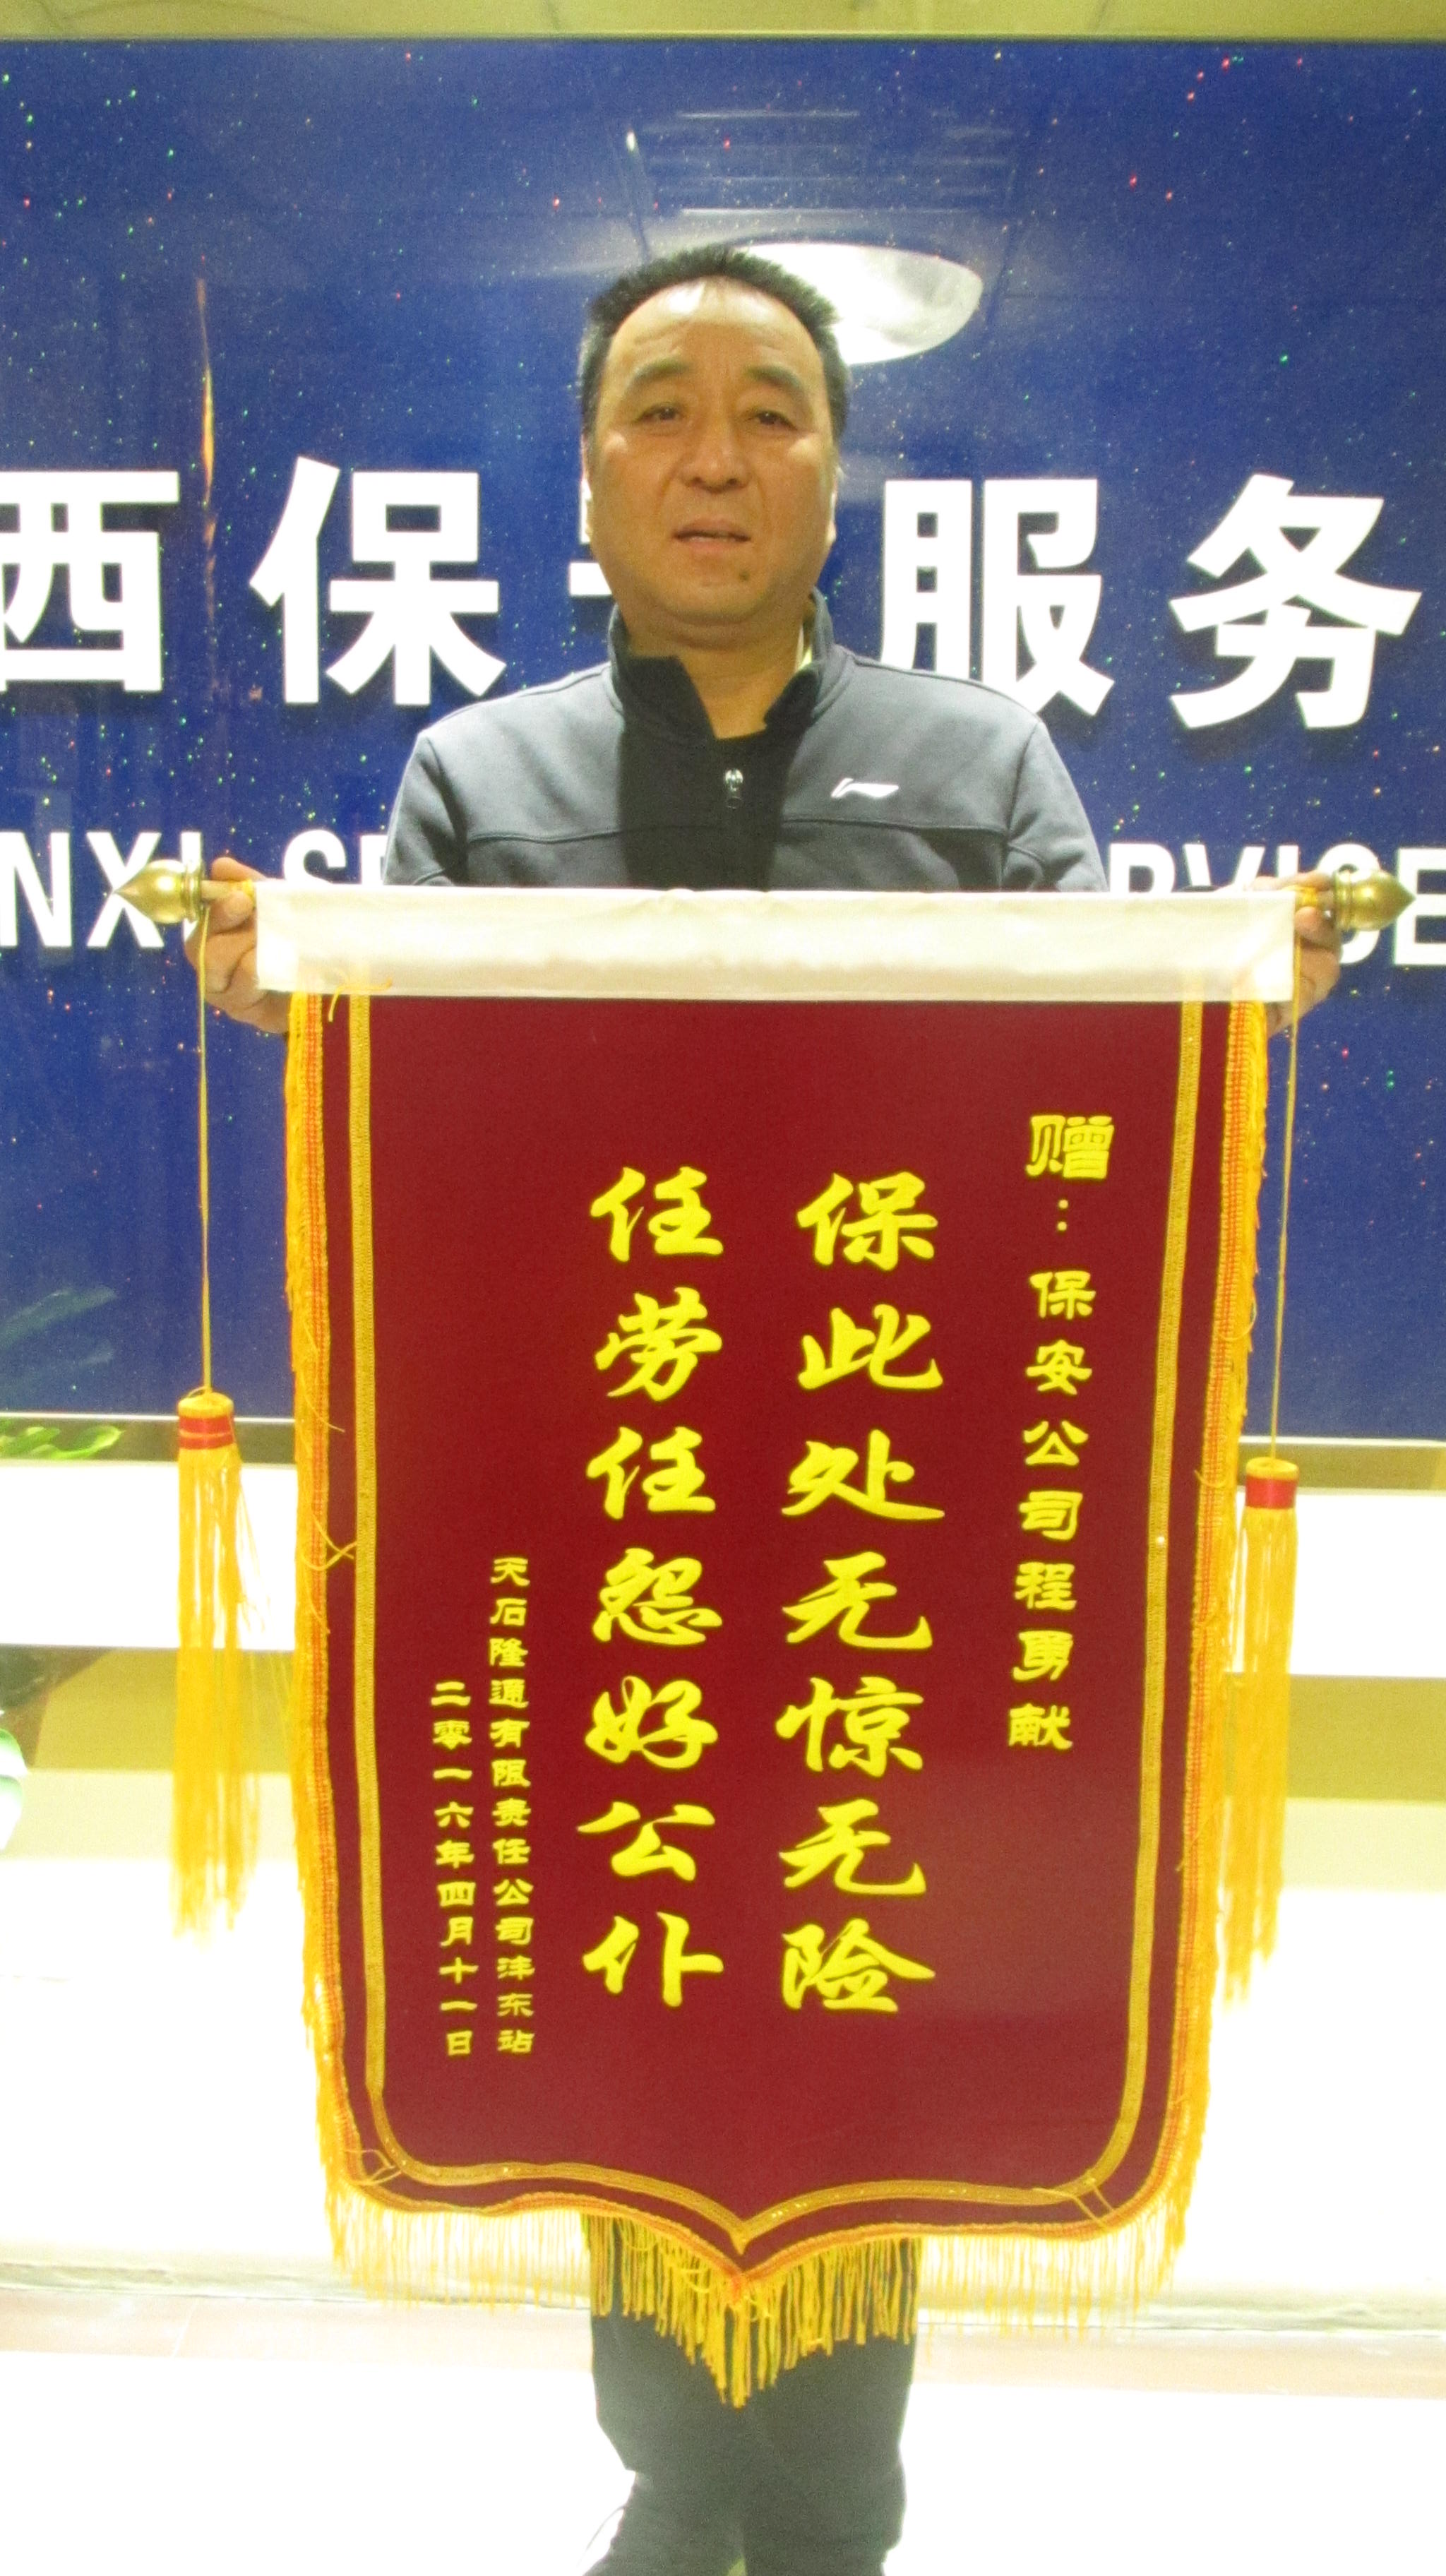 西保 服务
NXI SE RVICE
赠：保安公司程勇献
保此处无惊无险
任劳任怨好公仆
天石隆通有限责任公司沣东站
二零一六年四月十一日